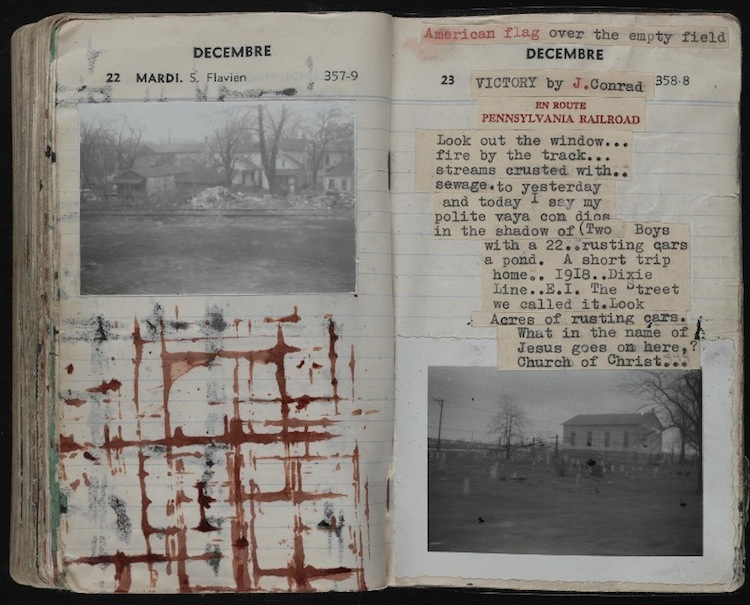 DECEMBRE
22 MARDI. S. Flavien 357-9
American flag over the empty field
DECEMBRE
23 VICTORY by J.Conrad 358-8
EN ROUTE
PENNSYLVANIA RAILROAD
Look out the window...
fire by the track...
streams crusted with..
sewage.to yesterday
and today I say my
polite vaya con dios
in the shadow of(Two Boys
with a 22..rusting cars
a pond. A short trip
home.. 1918..Dixie
Line..E.I. The Street
we called it.Look
Acres of rusting cars.
What in the name of
Jesus goes on here,?
Church of Christ...